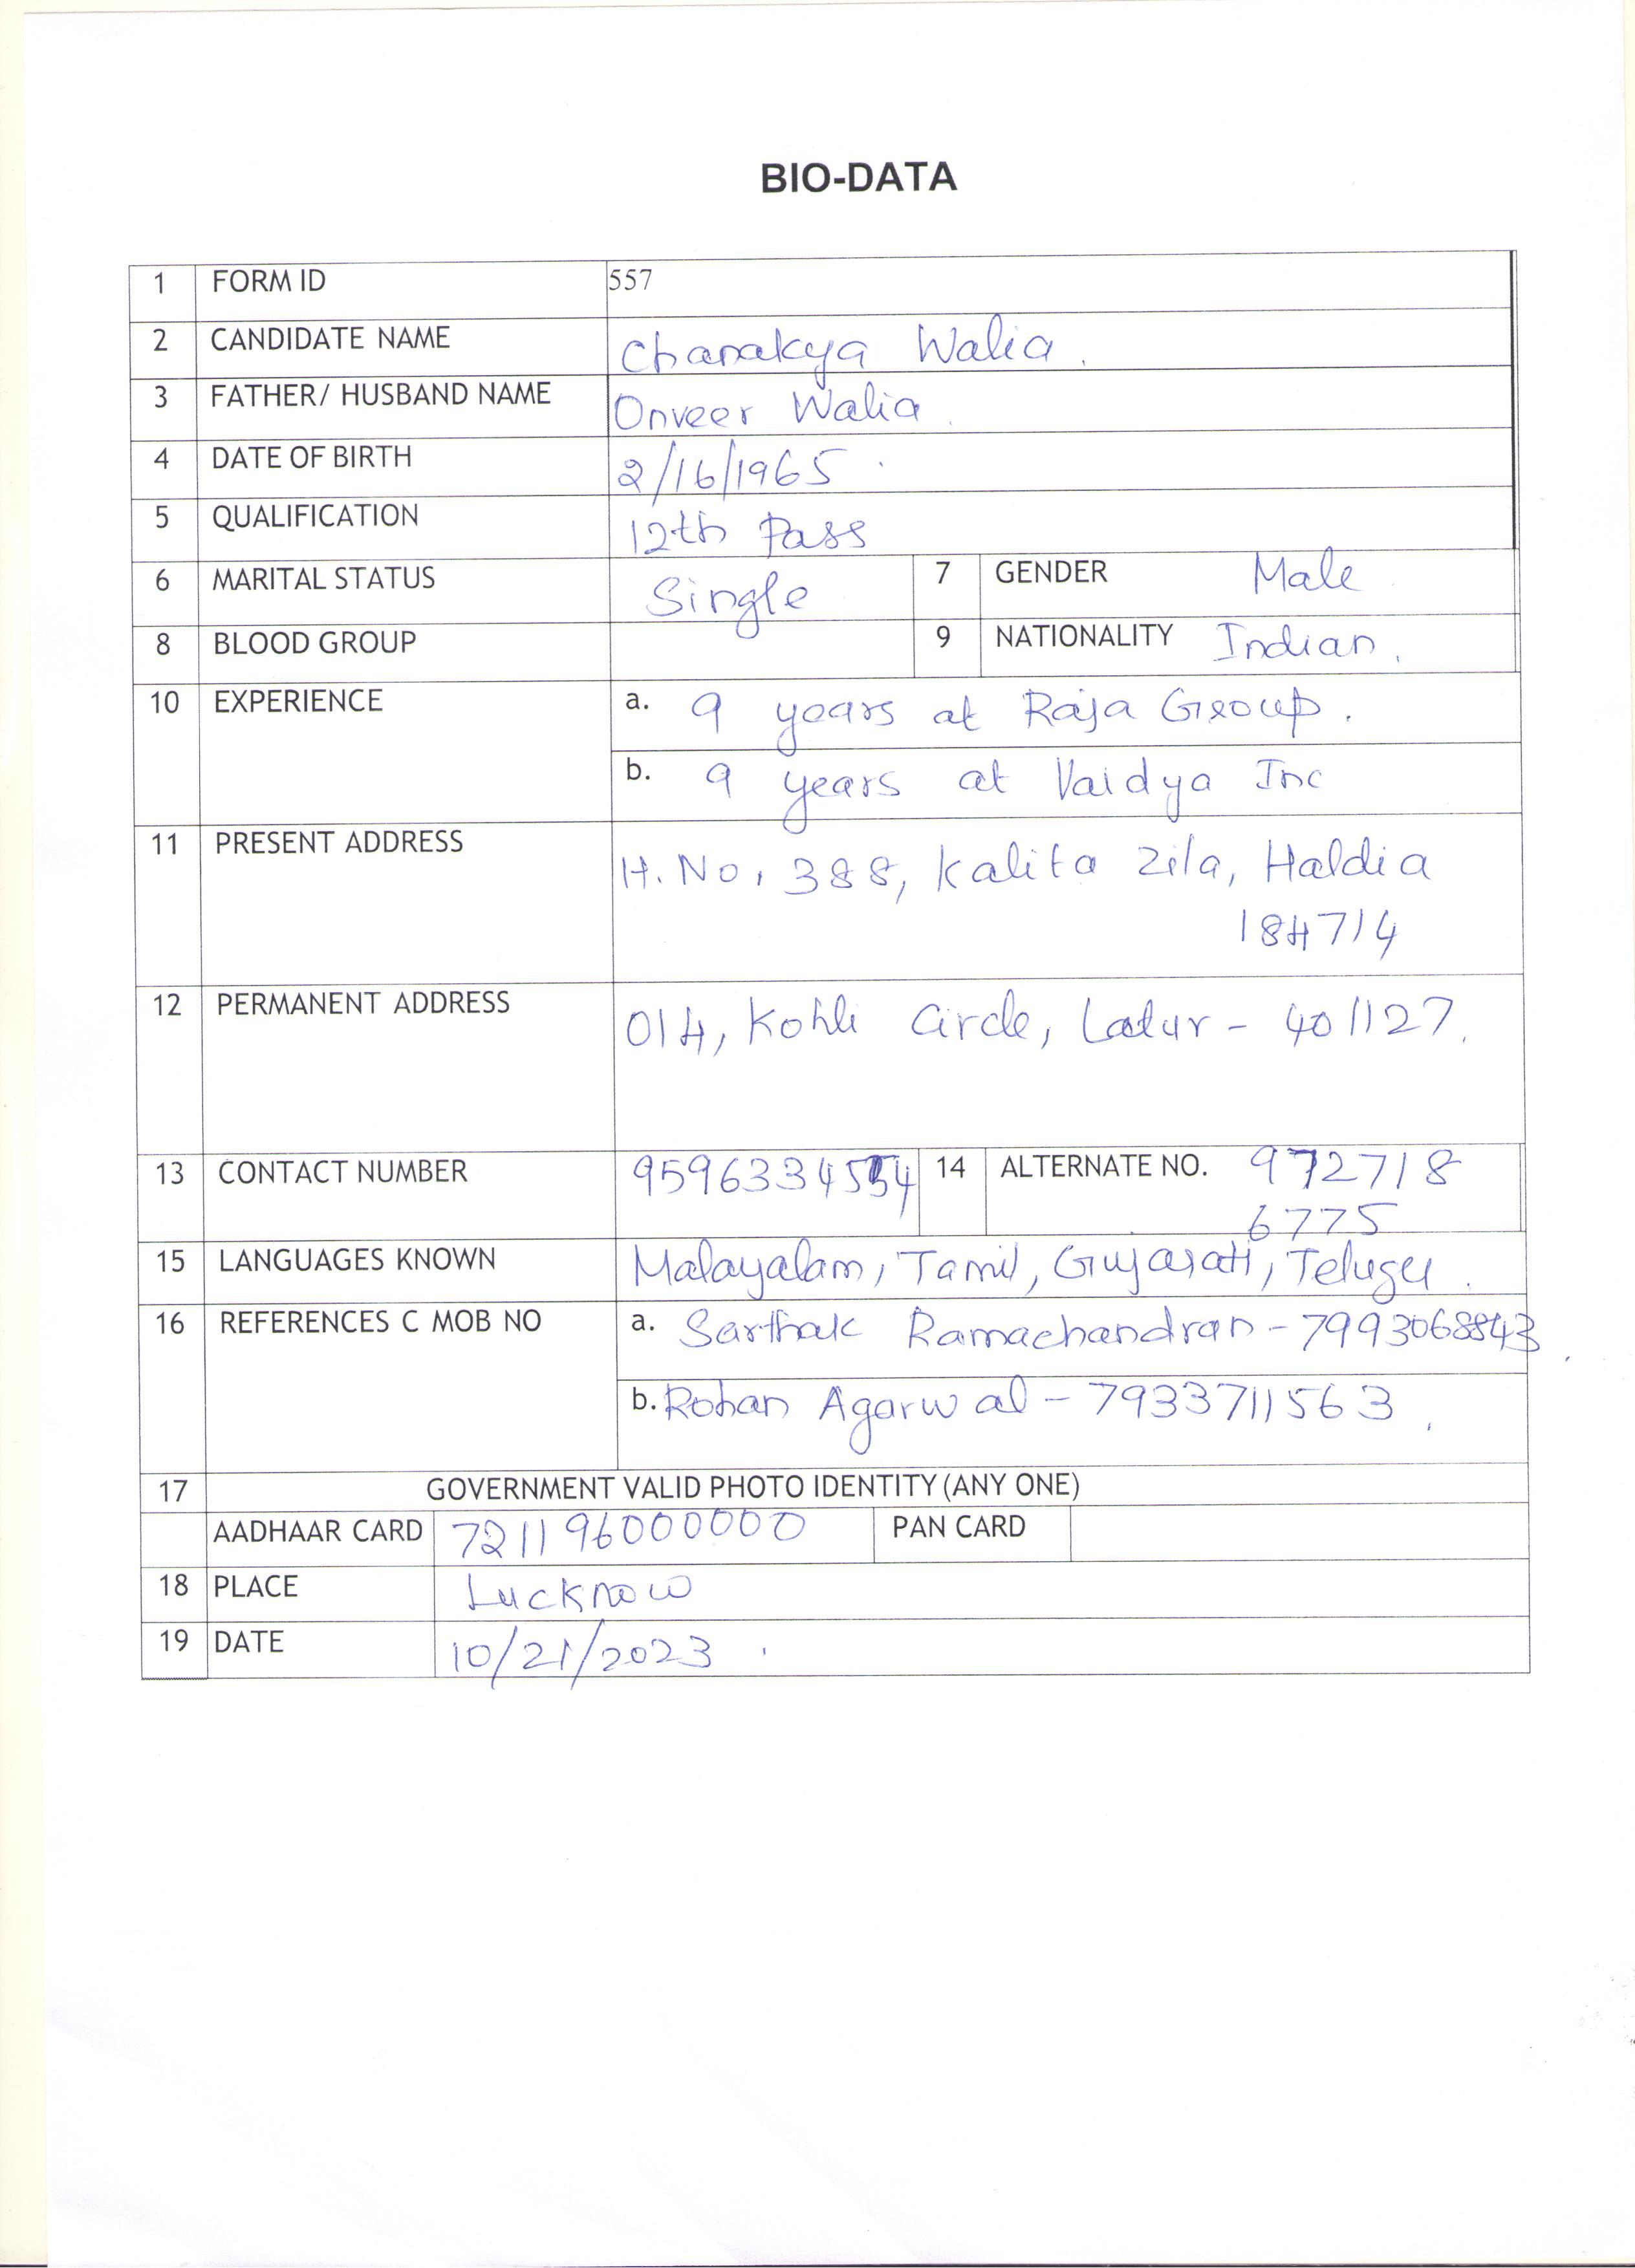 BIO-DATA
1 FORM ID 557
2 CANDIDATE NAME Chanakya Walia.
3 FATHER/ HUSBAND NAME Onveer Walia.
4 DATE OF BIRTH 2/16/1965.
5 QUALIFICATION 12th Pass
6 MARITAL STATUS Single 7 GENDER Male
8 BLOOD GROUP 9 NATIONALITY Indian.
10 EXPERIENCE a. 9 years at Raja Group.
b. 9 years at Vaidya Inc
11 PRESENT ADDRESS H. No. 388, Kalita Zila, Haldia
184714
12 PERMANENT ADDRESS 014, Kohli Circle, Latur - 401127.
13 CONTACT NUMBER 14 ALTERNATE NO. 972718
6775
15 LANGUAGES KNOWN Malayalam, Tamil, Gujarati, Telugu.
16 REFERENCES C MOB NO a. Sarthak Ramachandran - 7993068843
b. Rohan Agarwal - 7933711563.
17 GOVERNMENT VALID PHOTO IDENTITY (ANY ONE)
AADHAAR CARD 721196000000 PAN CARD
18 PLACE Lucknow
19 DATE 10/21/2023.